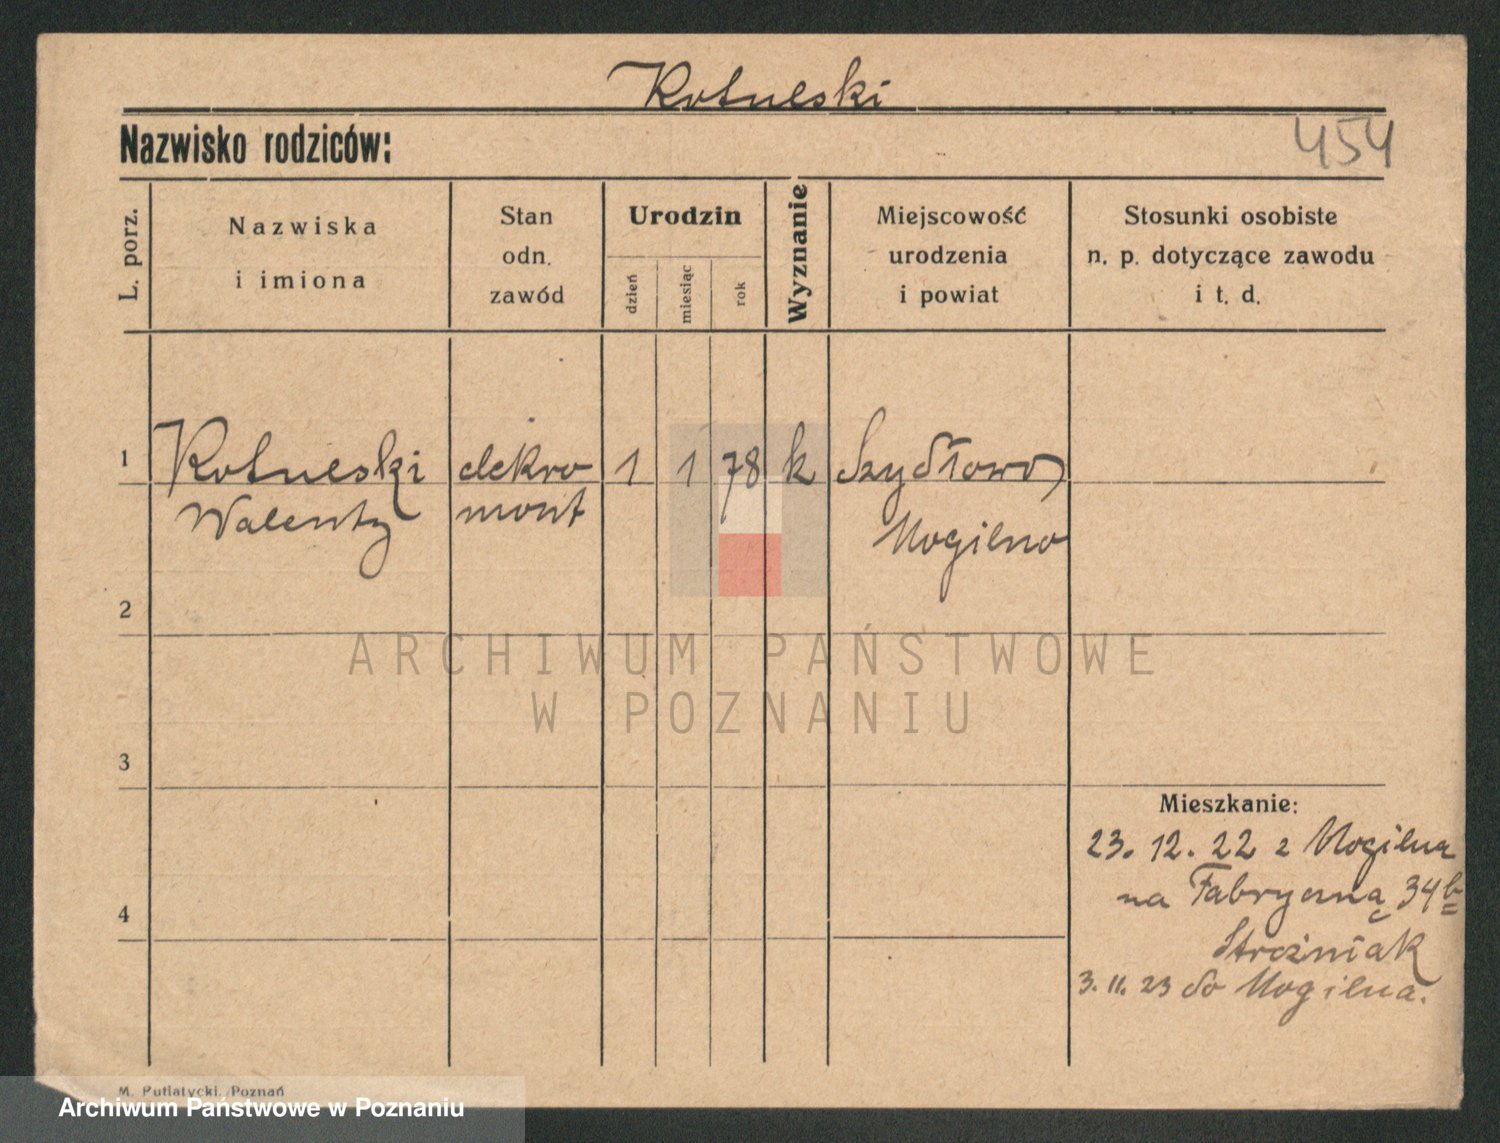 Kotneski
Nazwisko rodziców:
454
L. porz.
Nazwiska
i imiona
Stan
odn.
zawód
Urodzin
dzień
miesiąc
rok
Wyznanie
Miejscowość
urodzenia
i powiat
Stosunki osobiste
n. p. dotyczące zawodu
i t. d.
1 Kotneski elektro 1 1 78 k Szydłowo
Walenty mont Mogilno
2
3
4
Mieszkanie:
23. 12. 22 z Mogilna
na Fabryczną 34b
Stróżniak
3. 11. 23 do Mogilna.
ARCHIWUM PAŃSTWOWE
W POZNANIU
M. Putiatycki, Poznań
Archiwum Państwowe w Poznaniu